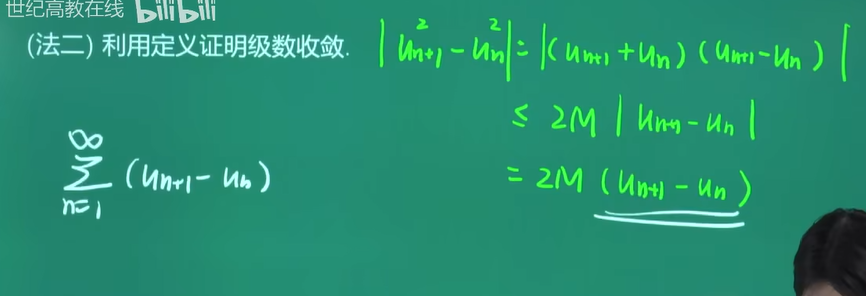 世纪高教在线 bilibili
(法二) 利用定义证明级数收敛.
|u²ₙ₊₁ - u²ₙ| = |(uₙ₊₁ + uₙ)(uₙ₊₁ - uₙ)|
≤ 2M |uₙ₊₁ - uₙ|
= 2M (uₙ₊₁ - uₙ)
∞
∑ (uₙ₊₁ - uₙ)
n=1